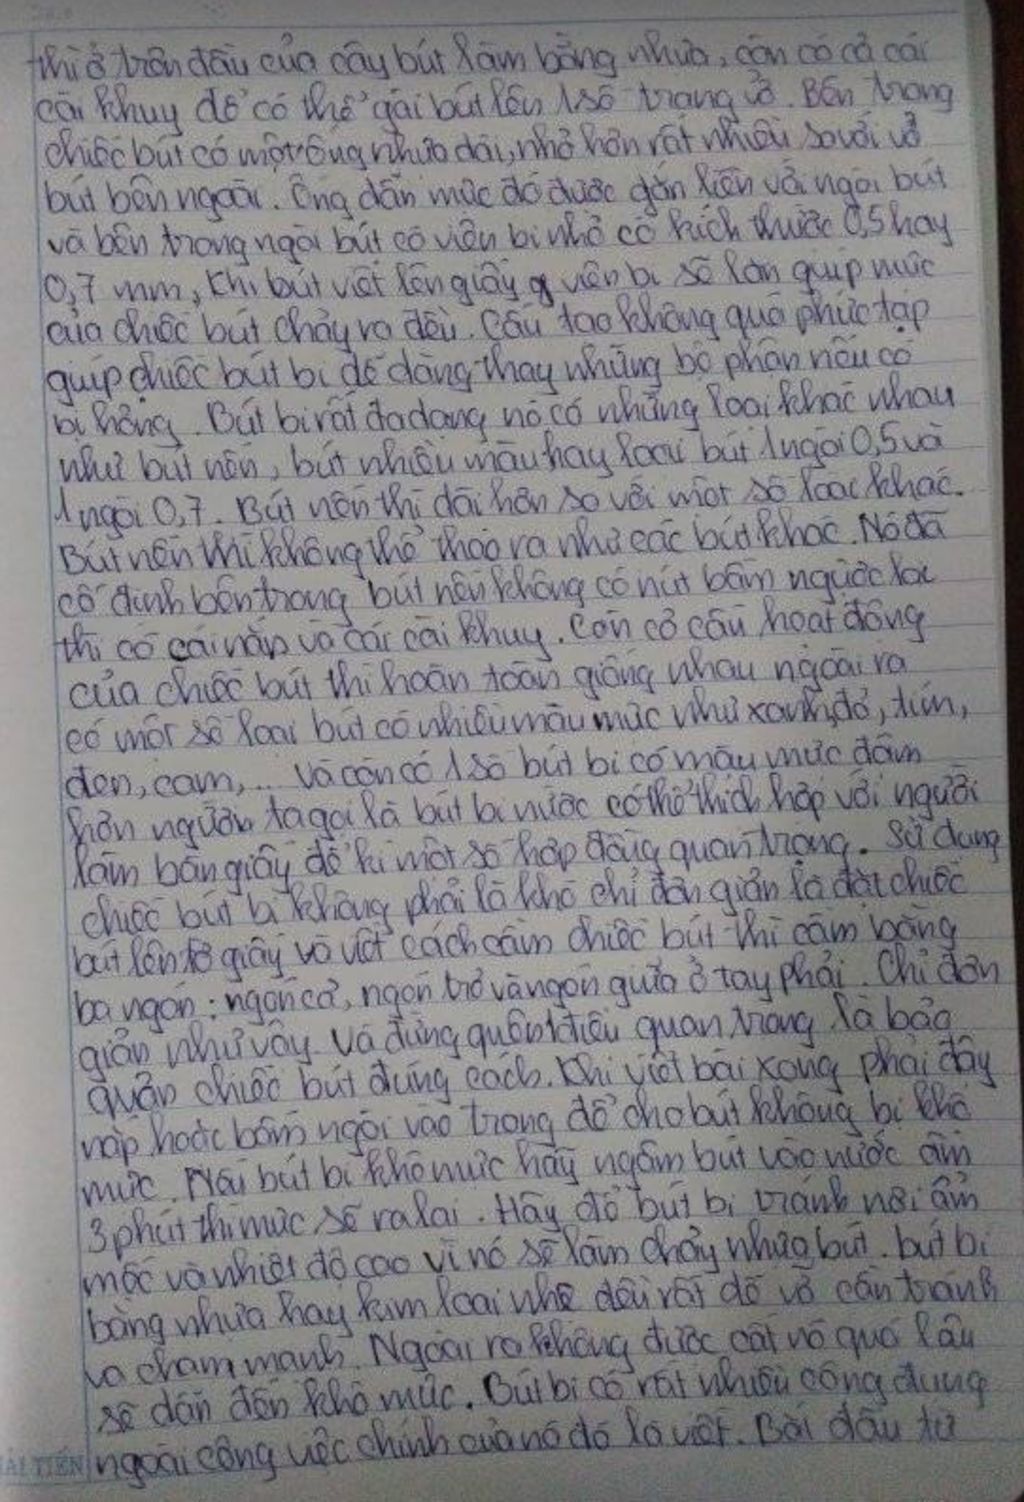 thì ở trên đầu của cây bút làm bằng nhựa, còn có cả cái
cài khuy để có thể gài bút lên 1 số trang vở. Bên trong
chiếc bút có một ống nhựa dài, nhỏ hơn rất nhiều so với vỏ
bút bên ngoài. Ống dẫn mực đó được gắn liền với ngòi bút
và bên trong ngòi bút có viên bi nhỏ có kích thước 0,5 hay
0,7 mm, khi bút viết lên giấy viên bi sẽ lăn giúp mực
của chiếc bút chảy ra đều. Cấu tạo không quá phức tạp
giúp chiếc bút bi dễ dàng thay những bộ phận nếu có
bị hỏng. Bút bi rất đa dạng nó có những loại khác nhau
như bút nến, bút nhiều màu hay loại bút 1 ngòi 0,5 và
1 ngòi 0,7. Bút nến thì dài hơn so với một số loại khác.
Bút nến thì không thể tháo ra như các bút khác. Nó đã
cố định bên trong bút nên không có nút bấm ngược lại
thì có cái nắp và cái cài khuy. Còn cơ cấu hoạt động
của chiếc bút thì hoàn toàn giống nhau ngoài ra
có một số loại bút có nhiều màu mực như xanh, đỏ, tím,
đen, cam,... và còn có 1 số bút bi có màu mực đậm
hơn người ta gọi là bút bi nước có thể thích hợp với người
làm bàn giấy để kí một số hợp đồng quan trọng. Sử dụng
chiếc bút bi không phải là khó chỉ đơn giản là đặt chiếc
bút lên tờ giấy và viết cách cầm chiếc bút thì cầm bằng
ba ngón: ngón cả, ngón trỏ và ngón giữa ở tay phải. Chỉ đơn
giản như vậy và đừng quên 1 điều quan trọng là bảo
quản chiếc bút đúng cách. Khi viết bài xong phải đậy
nắp hoặc bấm ngòi vào trong để cho bút không bị khô
mực. Nếu bút bị khô mực hãy ngâm bút vào nước ấm
3 phút thì mực sẽ ra lại. Hãy để bút bi tránh nơi ẩm
mốc và nhiệt độ cao vì nó sẽ làm chảy nhựa bút. bút bi
bằng nhựa hay kim loại nhẹ đều rất dễ vỡ cần tránh
va chạm mạnh. Ngoài ra không được cất nó quá lâu
sẽ dẫn đến khô mực. Bút bi có rất nhiều công dụng
ngoài công việc chính của nó đó là viết. Bởi đầu từ
HẢI TIẾN